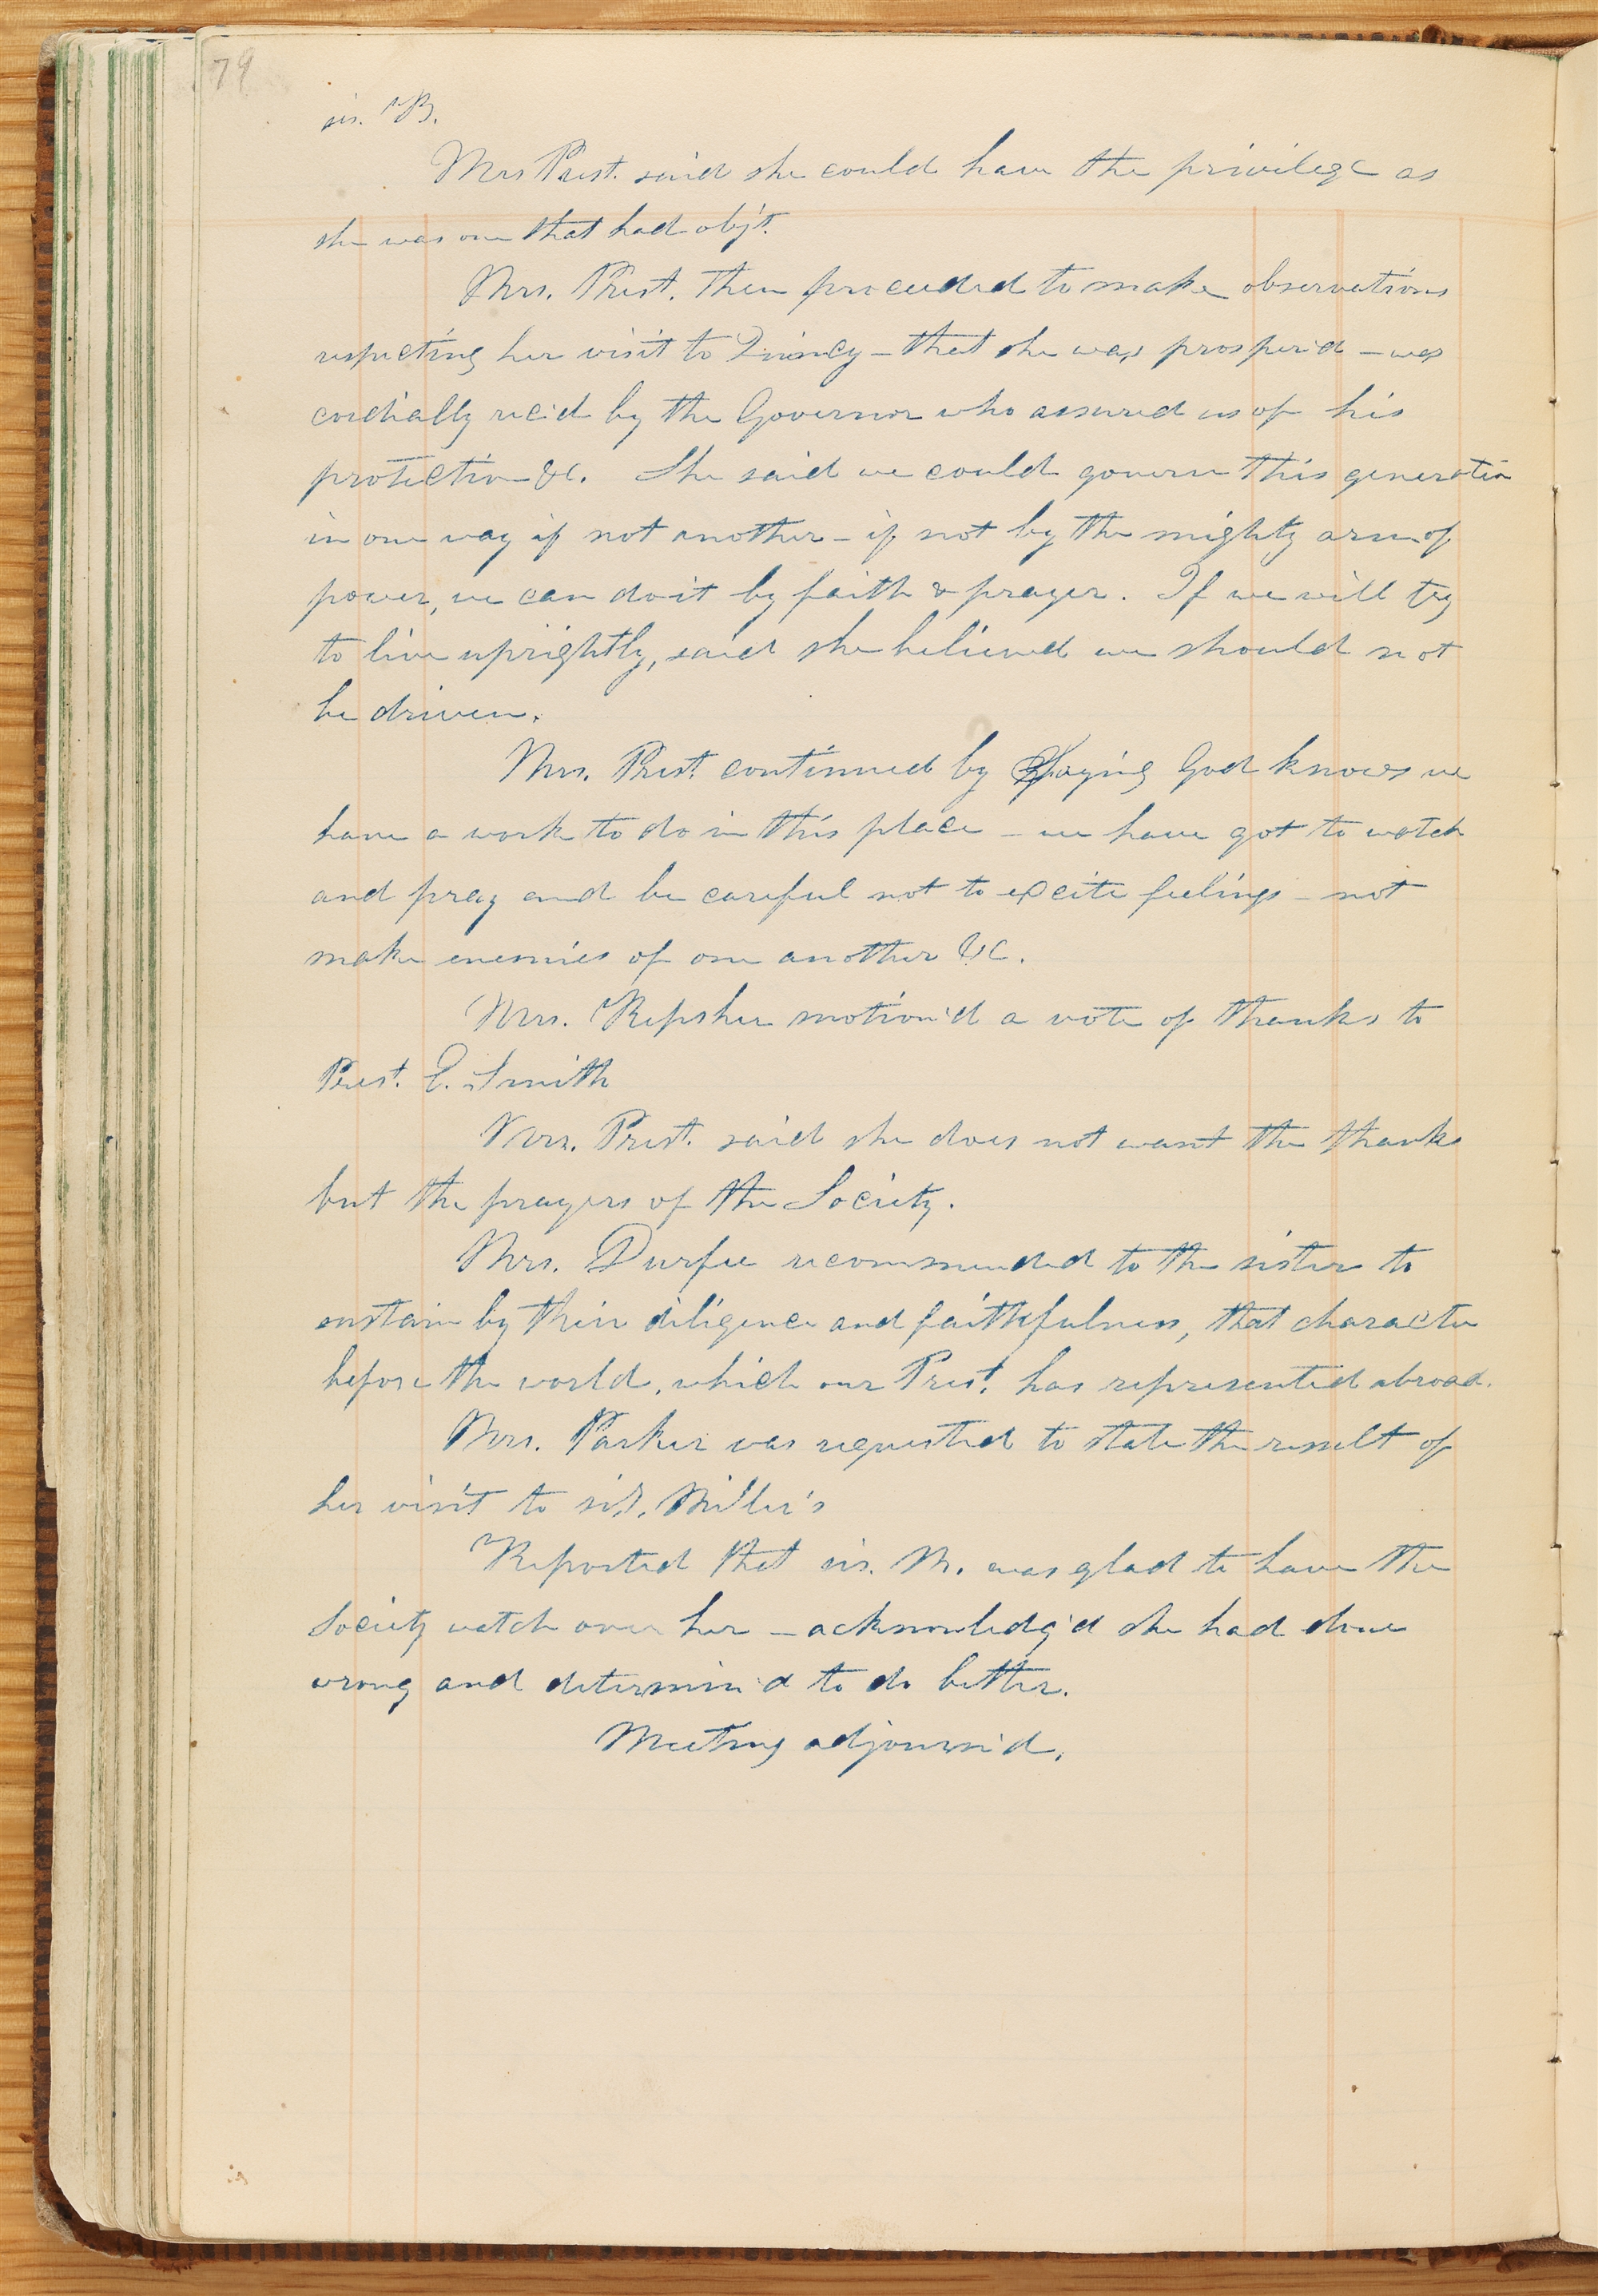 79
sis. B.
Mrs Prest. said she could have the privilege as
she was one that had obj't.
Mrs. Prest. then proceeded to make observations
respecting her visit to Quincy – that she was prosper'd – was
cordially rec'd by the Governor who assured us of his
protection &c. She said we could govern this generation
in one way if not another – if not by the mighty arm of
power, we can do it by faith & prayer. If we will try
to live uprightly, said she believed we should not
be driven.
Mrs. Prest. continued by saying God knows we
have a work to do in this place – we have got to watch
and pray and be careful not to excite feelings – not
make enemies of one another &c.
Mrs. Repsher motion'd a vote of thanks to
Prest. E. Smith
Mrs. Prest. said she does not want the thanks
but the prayers of the Society.
Mrs. Durfee recommended to the sisters to
sustain by their diligence and faithfulness, that character
before the world, which our Prest. has represented abroad.
Mrs. Parker was requested to state the result of
her visit to sis. Miller's
Reported that sis. M. was glad to have the
Society watch over her – acknowledg'd she had done
wrong and determin'd to do better.
Meeting adjourn'd.